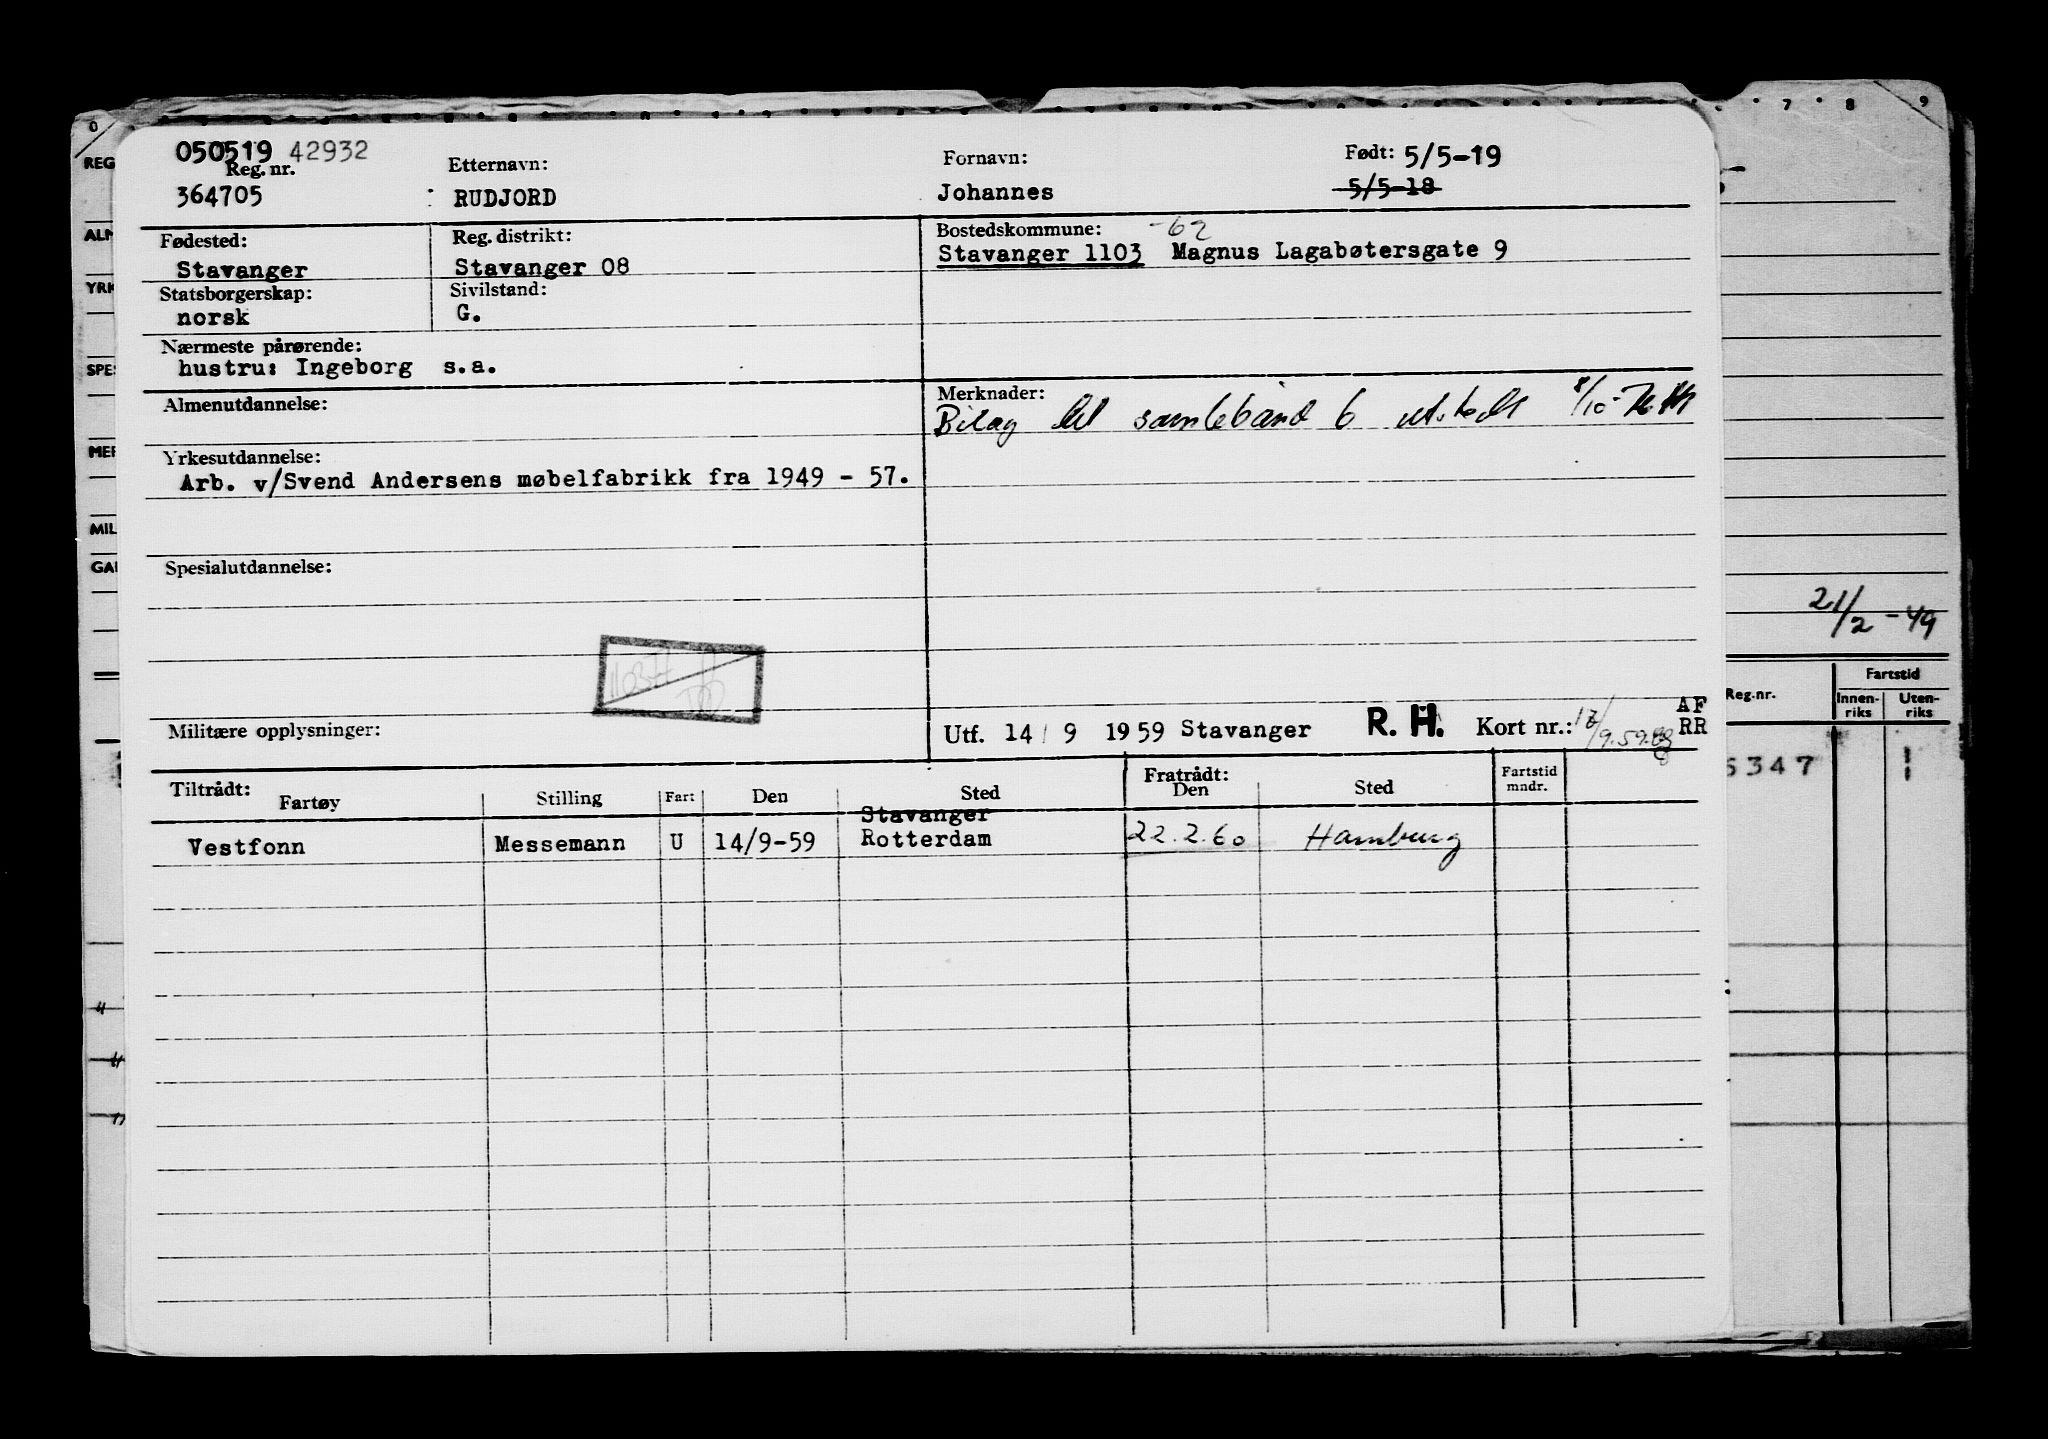 7 8 9
0
050519 42932
Reg. nr. Etternavn: Fornavn: Født: 5/5-19
364705 RUDJORD Johannes 5/5-18
Fødested: Reg. distrikt: Bostedskommune: -62
Stavanger Stavanger 08 Stavanger 1103 Magnus Lagabøtersgate 9
Statsborgerskap: Sivilstand:
norsk G.
Nærmeste pårørende:
hustru: Ingeborg s.a.
Almenutdannelse: Merknader:
Bilag til samlebånd 6 utstedt 8/10-
Yrkesutdannelse:
Arb. v/Svend Andersens møbelfabrikk fra 1949 - 57.
Spesialutdannelse:
Militære opplysninger: Utf. 14/ 9 1959 Stavanger R. H. Kort nr.: AF
RR
Tiltrådt: Fratrådt:
Fartøy Stilling Fart Den Sted Den Sted Fartstid
mndr.
Stavanger
Vestfonn Messemann U 14/9-59 Rotterdam 22.2.60 Hamburg
REG
ALM
YRK
SPES
MER
MIL
GAR
21/2-49
Reg.nr. Fartstid
Innen-
riks Uten-
riks
5347